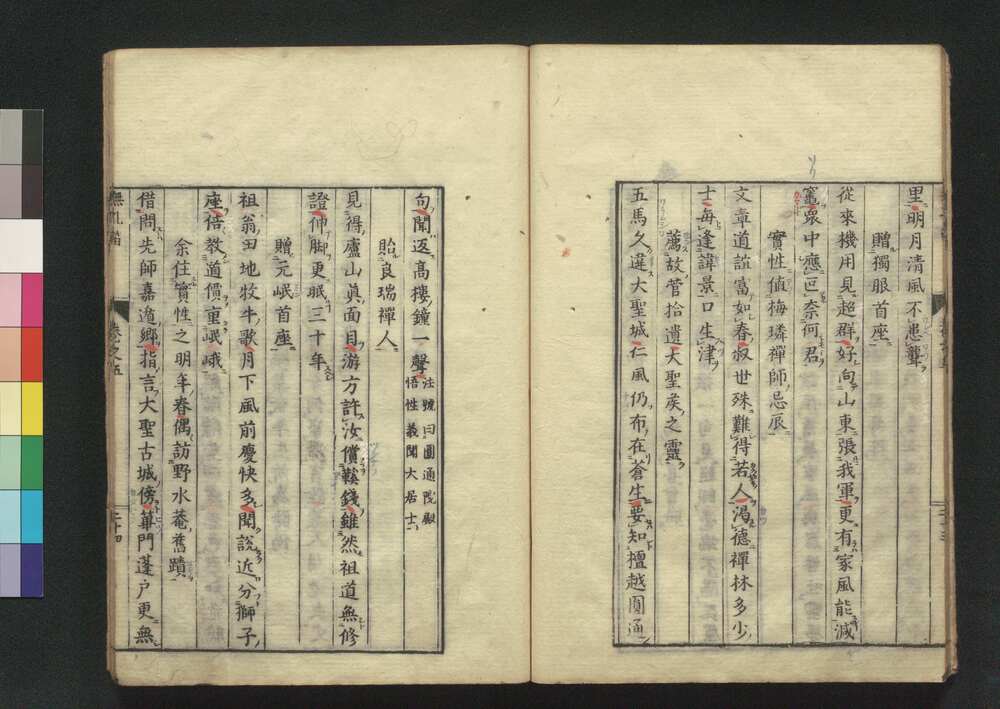 里明月清風不患聾
贈獨服首座
從來機用見超群好向山東張我軍更有家風能減
竈眾中應叵奈何君
實性値梅璘禪師忌辰
文章道誼富如春叔世殊難得若人渴德禪林多少
士每逢諱景口生津
薦故菅拾遺大聖矦之靈
五馬久違大聖城仁風仍布在蒼生要知檀越圓通
句聞返高樓鐘一聲 注號曰圓通院殿
悟性義聞大居士
貽良瑞禪人
見得廬山眞面目游方許汝償鞋錢雖然祖道無修
證伸脚更眠三十年
贈元岷首座
祖翁田地牧牛歌月下風前慶快多聞說近分獅子
座倍教道價重岷峨
余住實性之明年春偶訪野水菴舊蹟
借問先師嘉遁鄉指言大聖古城傍篳門蓬戸更無
卷之五
二十四